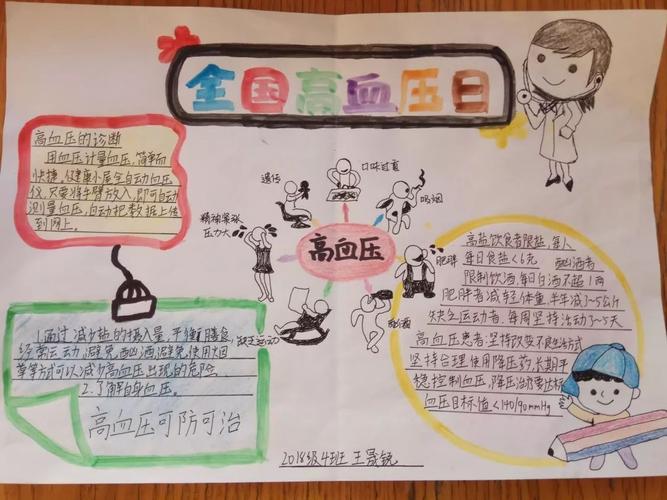 全国高血压日
高血压的诊断
用血压计量血压,简单而
快捷,健康小屋全自动血压
仪,只要将手臂放入,即可自动
测量血压,自动把数据上传
到网上。
遗传
口味过重
吸烟
精神紧张
压力大
高血压
肥胖
缺乏运动
酗酒
高盐饮食者限盐,每人
每日食盐<6克 酗酒者
限制饮酒,每日白酒不超1两
肥胖者减轻体重,半年减3~5公斤
缺乏运动者,每周坚持活动3~5天
高血压患者:坚持改变不良生活方式
坚持合理使用降压药,长期平
稳控制血压,降压治疗要达标
血压目标值<140/90mmHg
1.通过减少盐的摄入量,平衡膳食,
经常运动,避免酗酒,避免使用烟
草等方式可以减少高血压出现的危险。
2.了解自身血压。
高血压可防可治
2018级4班 王晟锐